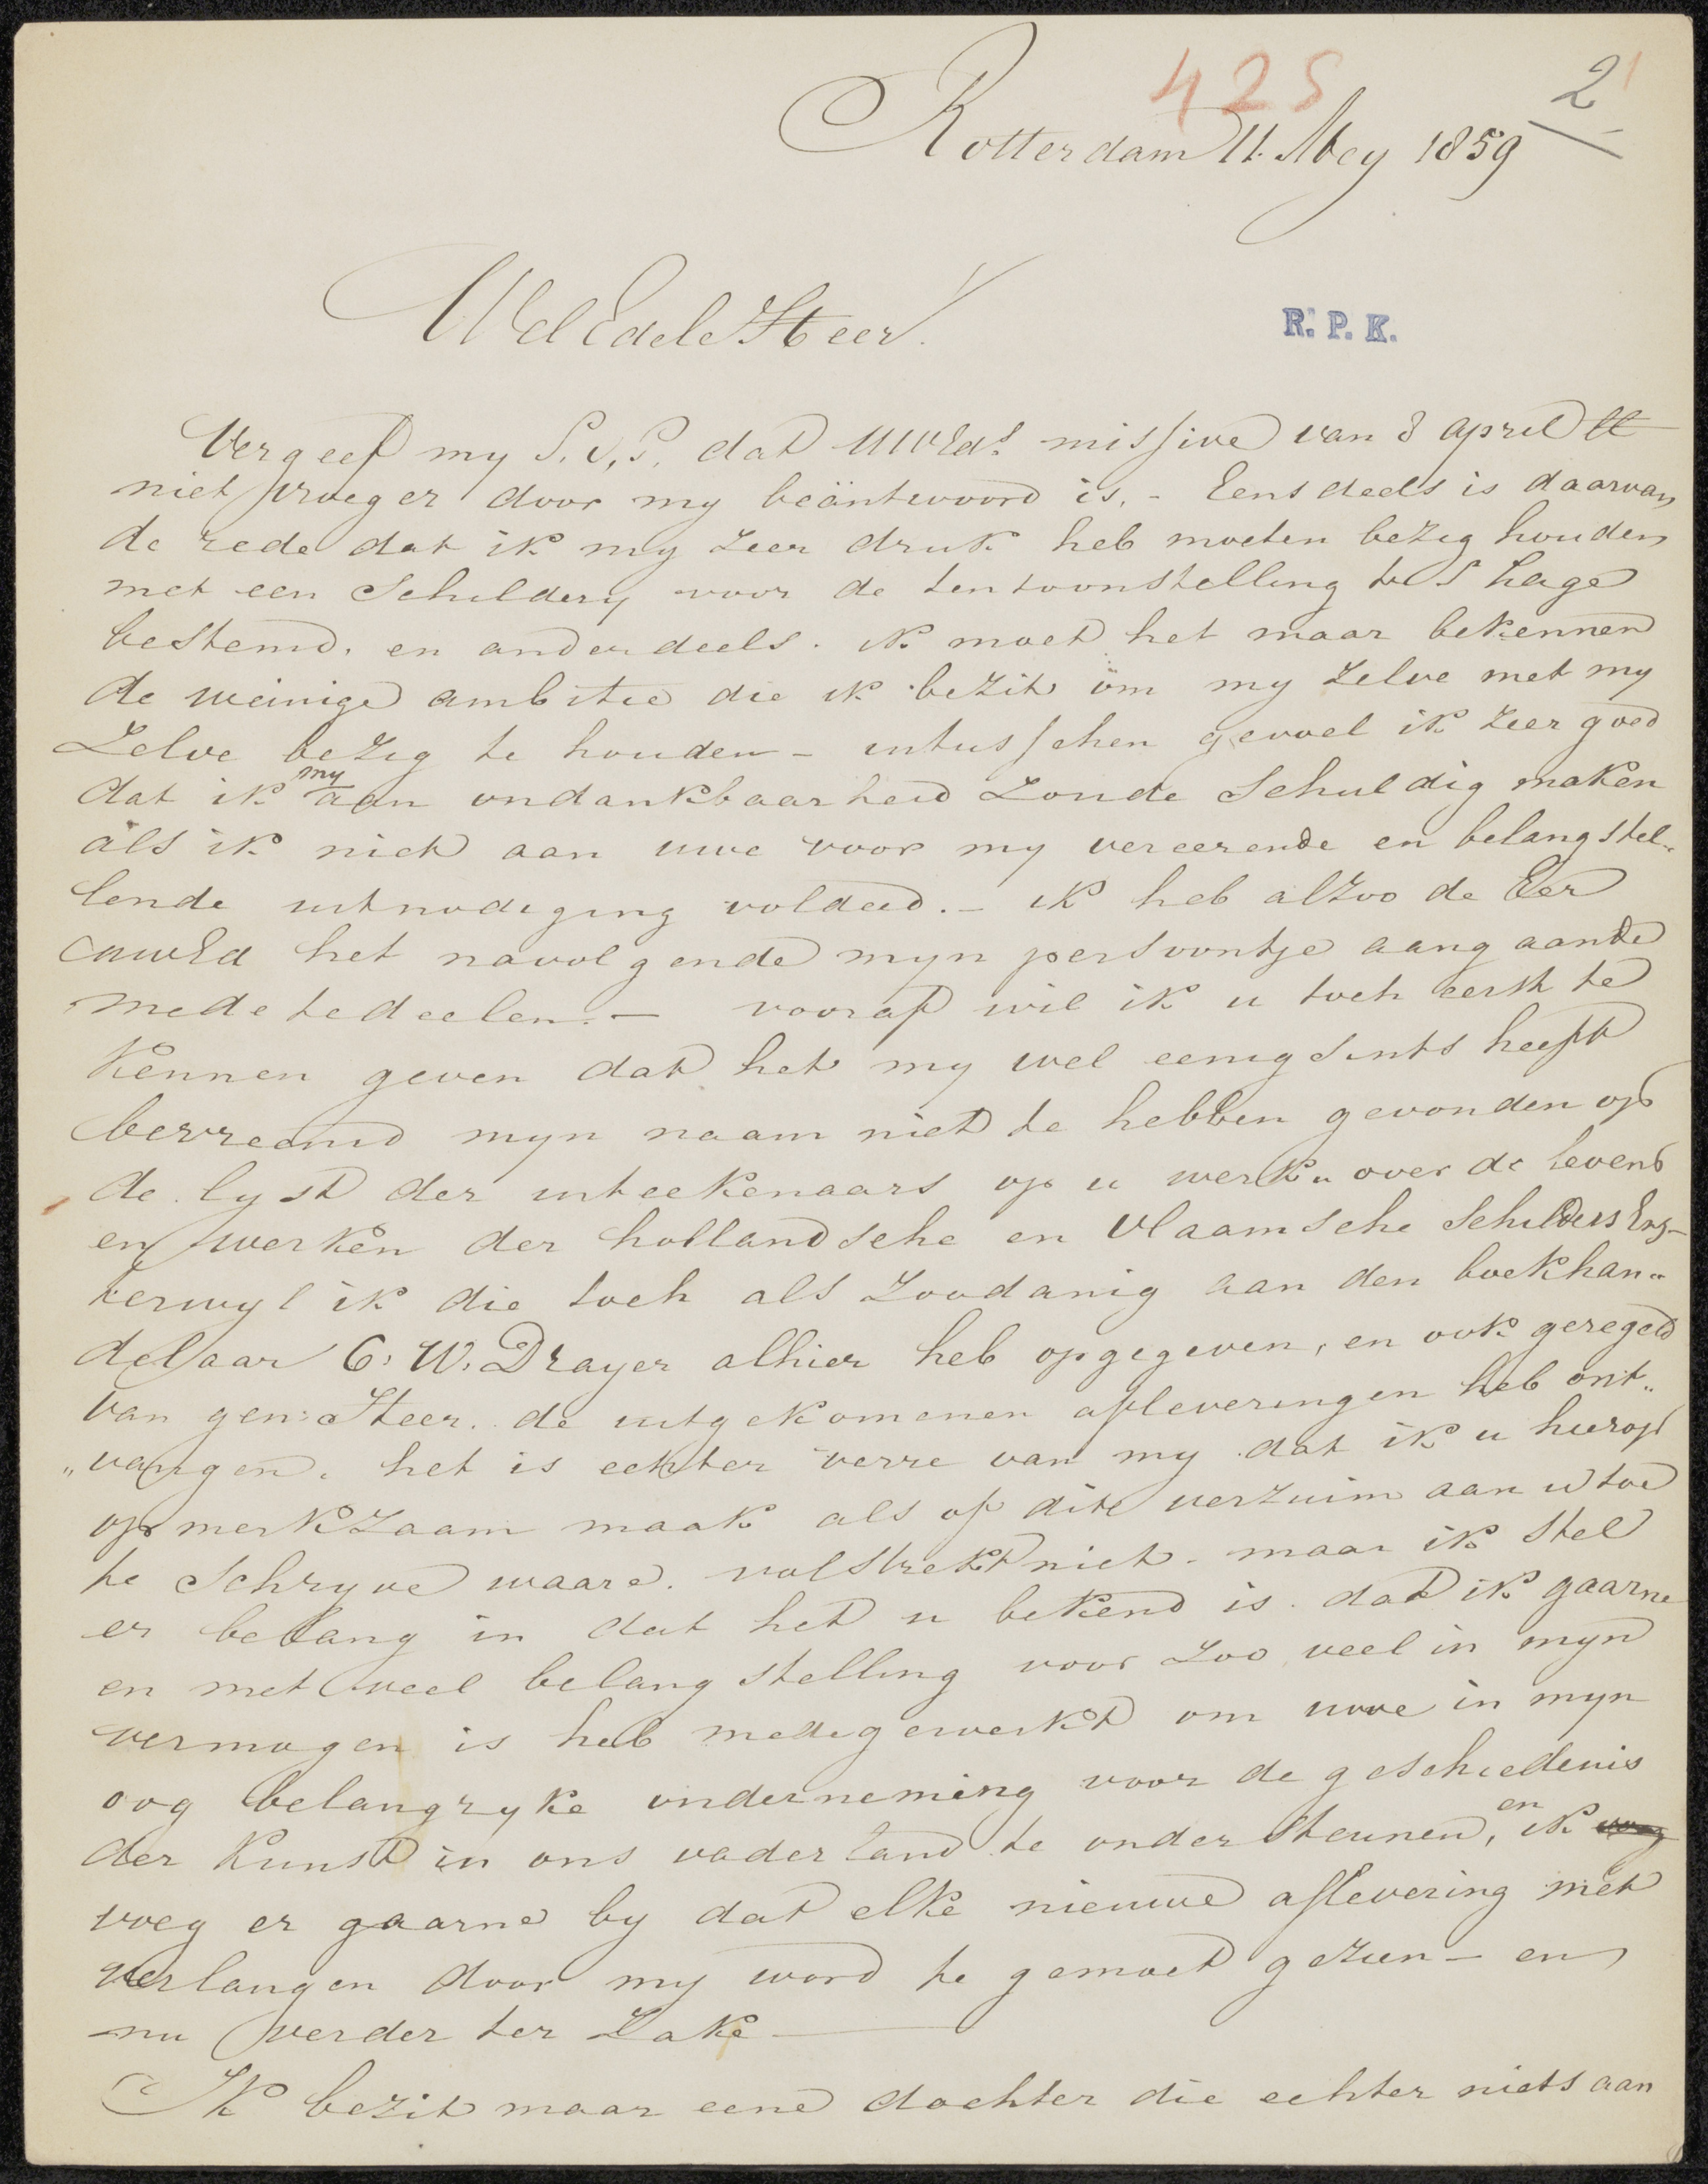 425
2
1
Rotterdam 11. Mey 1859
WelEdele Heer!
R. P. K.
Vergeef my S. v. P. dat UWEds missive van 8 april ll
niet vroeger door my beäntwoord is. - Eensdeels is daarvan
de rede dat ik my zeer druk heb moeten bezig houden
met een Schildery voor de tentoonstelling te S hage
bestemd. en anderdeels. ik moet het maar bekennen
de weinige ambitie die ik bezit om my zelve met my
Zelve bezig te houden - intusschen gevoel ik zeer goed
dat ik my aan ondankbaarheid Zoude Schuldig maken
als ik niet aan uwe voor my vereerende en belangstel„
lende uitnodiging voldeed. - ik heb alzoo de Eer
UWEd het navolgende myn persoontje aangaande
mede te deelen. - vooraf wil ik u toch eerst te
kennen geven dat het my wel eenigsints heeft
bevreemd myn naam niet te hebben gevonden op
de lyst der inteekenaars op u werk„ over de levens
en werken der hollandsche en Vlaamsche Schilders Enz-
terwyl ik die toch als Zoodanig aan den boekhan„
delaar C. W. Drayer alhier heb opgegeven, en ook geregeld
van gen: Heer. de uitgekomenen afleveringen heb ont„
„vangen. het is echter verre van my dat ik u hierop
opmerkzaam maak als of dit verzuim aan u toe
te Schryve waare. volstrekt niet - maar ik Stel
er belang in dat het u bekend is. dat ik gaarne
en met veel belangstelling voor Zoo veel in myn
vermogen is heb medegewerkt om uwe in myn
oog belangryke onderneming voor de geschiedenis
der Kunst in ons vaderland te ondersteunen, en ik
voeg er gaarne by dat elke nieuwe aflevering met
verlangen door my word te gemoet gezien - en
nu verder ter Zake
Ik bezit maar eene dochter die echter niets aan